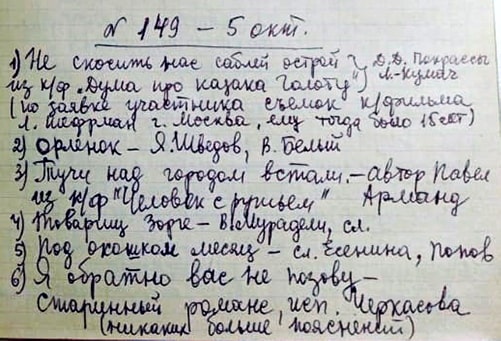 № 149 – 5 окт.
1) Не скосить нас саблей острой } Д.Д. Покрассы
из к/ф „Дума про казака Голоту") Л-Кумач
(по заявке участника съемок к/фильма
г. Москва, ему тогда было 15 лет)
2) Орленок – Я. Шведов, В. Белый
3) Тучи над городом встали. – автор Павел
из к/ф "Человек с ружьем" Арманд
4) Товарищ Зорге – В. Мурадели, сл.
5) Под окошком месяц – сл. Есенина, Попов
6) Я обратно вас не позову –
Старинный романс, исп. Черкасова
(никаких больше пояснений)